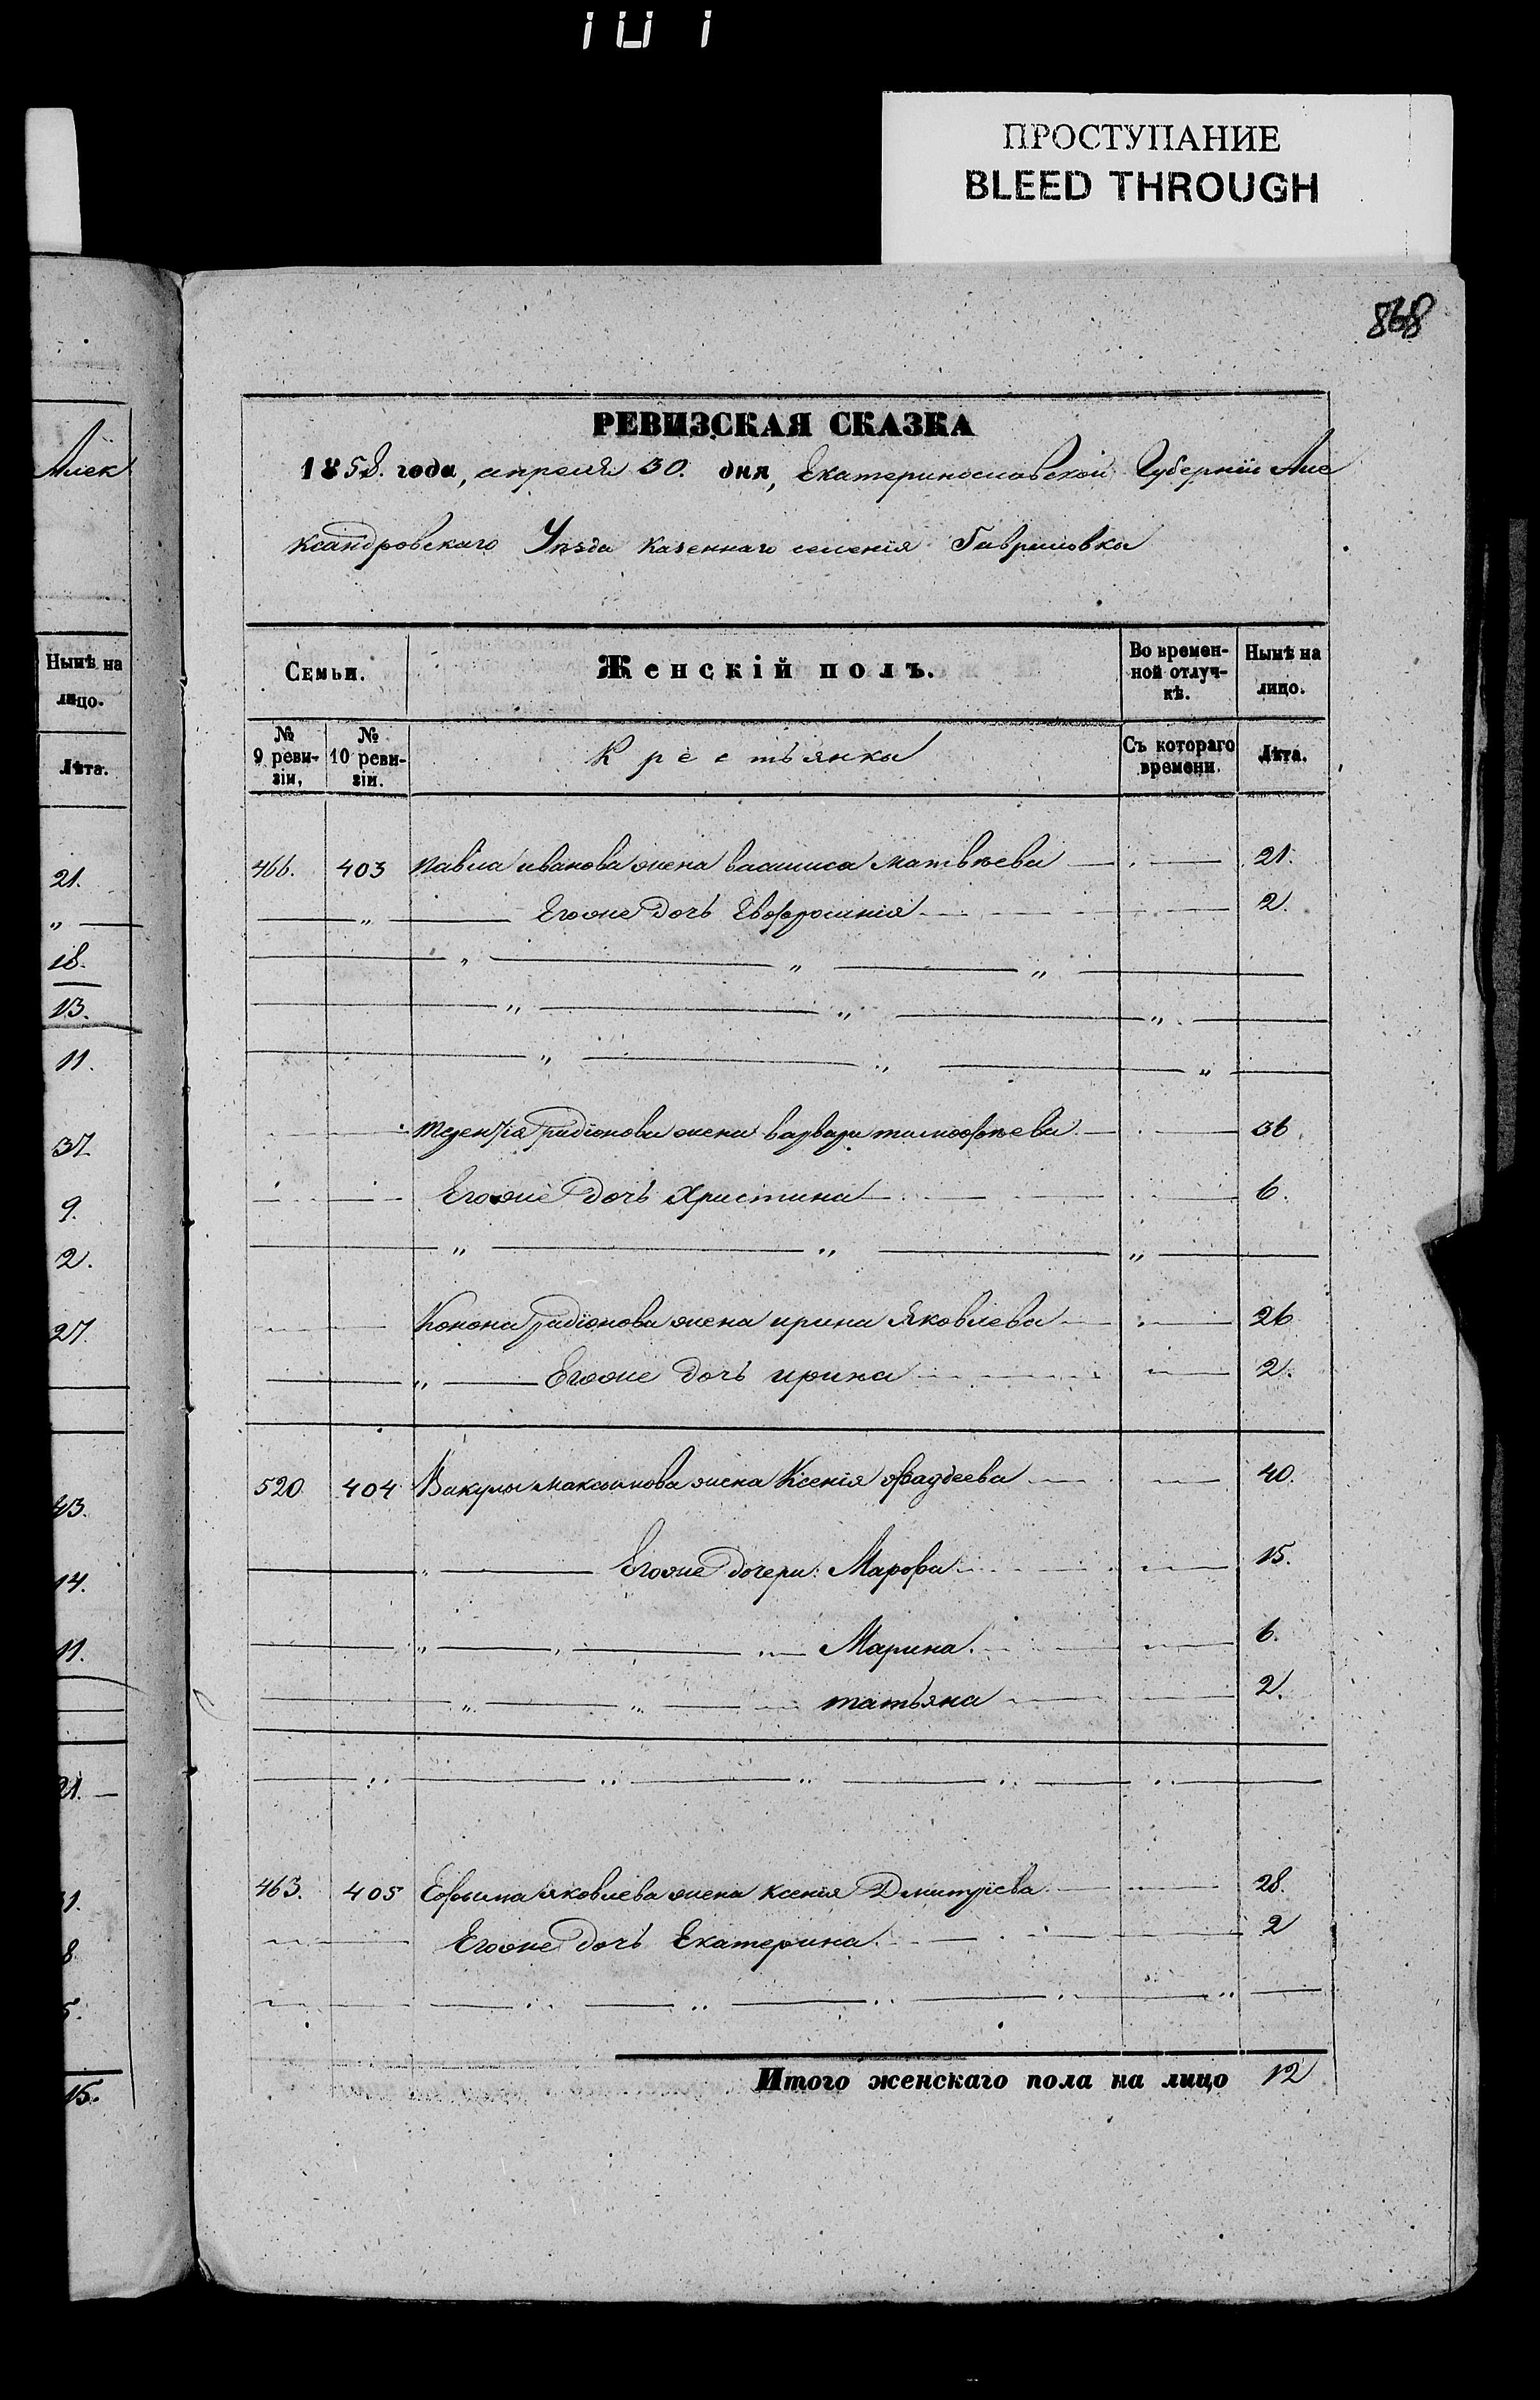 ПРОСТУПАНИЕ
BLEED THROUGH
868
Алек
Нынѣ на
лицо.
Лѣта.
21.
"
18.
13.
11.
37
9.
2.
27.
43.
14.
11.
21.
15.
РЕВИЗСКАЯ СКАЗКА
1858. года, апреля 30. дня, Екатеринославской Губерніи Але
ксандровскаго Уѣзда казеннаго селенія Гавриловки
Семьи.
Женскій полъ.
Во времен-
ной отлуч-
кѣ.
Нынѣ на
лицо.
№
9 реви-
зіи,
№
10 реви-
зіи.
Крестьянки
Съ котораго
времени.
Лѣта.
466. 403 Павла иванова жена василиса матвѣева 21.
" Егоже дочь Евфросинія 2.
" " "
" " "
" " "
терентія радіонова жена варвара тимофѣева 36.
Егоже дочь Христина 6.
" " "
Конона радіонова жена ирина Яковлева 26
" Егоже дочь ирина 2.
520 404 Вакулы максимова жена Ксенія фаддеева 40.
" Егоже дочери: Марфа 15.
" " " Марина. 6.
" " татьяна 2.
463. 405 Ефима яковлева жена ксенія Дмитріева 28.
Егоже дочь Екатерина. 2
Итого женскаго пола на лицо 12